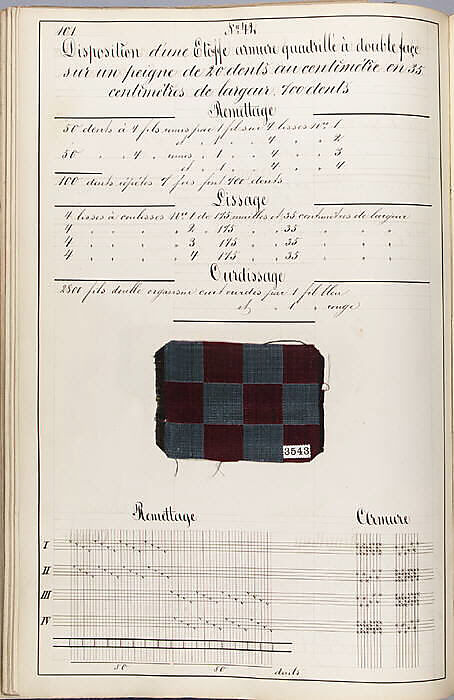 101
No 42.
Disposition d'une Etoffe armure quadrille à double face
sur un peigne de 20 dents au centimètre en 35
centimètres de largeur. 700 dents
Remettage
50 dents à 4 fils unis par 1 fil sur 4 lisses No 1
et „ 1 „ 4 „ „ 2
50 „ „ 4 „ unis „ 1 „ 4 „ „ 3
et „ 1 „ 4 „ „ 4
100 dents répétés 7 fois font 700 dents
Lissage
4 lisses à coulisses No 1 de 175 mailles et 35 centimètres de largeur
4 „ „ „ 2 „ 175 „ „ 35 „ „ „
4 „ „ „ 3 „ 175 „ „ 35 „ „ „
4 „ „ „ 4 „ 175 „ „ 35 „ „ „
Ourdissage
2800 fils double organsin cuit ourdis par 1 fil bleu
et „ 1 „ rouge
3543
Remettage
Armure
I
II
III
IV
50 50 dents